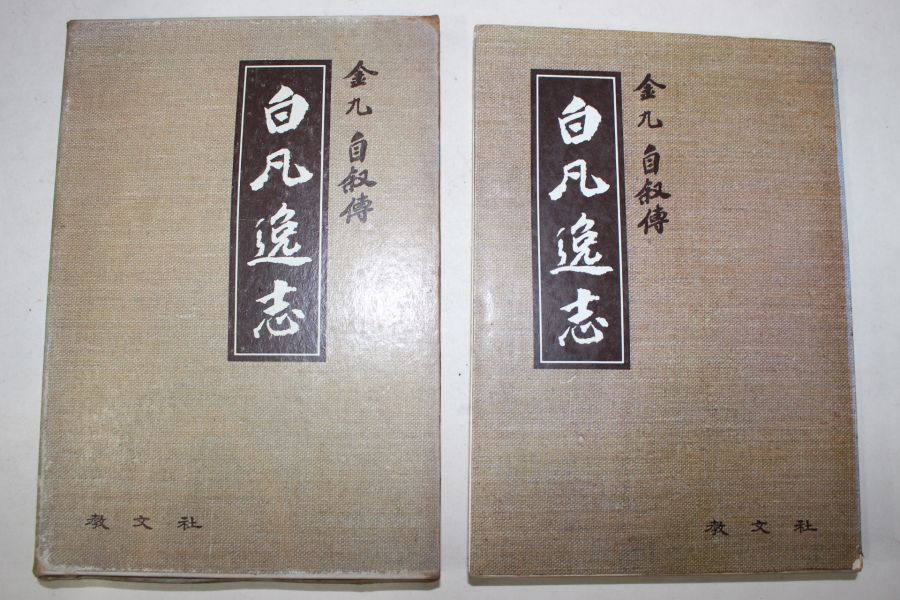 金九 自叙傳
白凡逸志
教文社
金九 自叙傳
白凡逸志
教文社